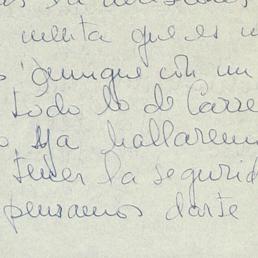 menta que es
aunque con un
todo lo de Carre
ya hallarem
tener la segurid
pensamos darte